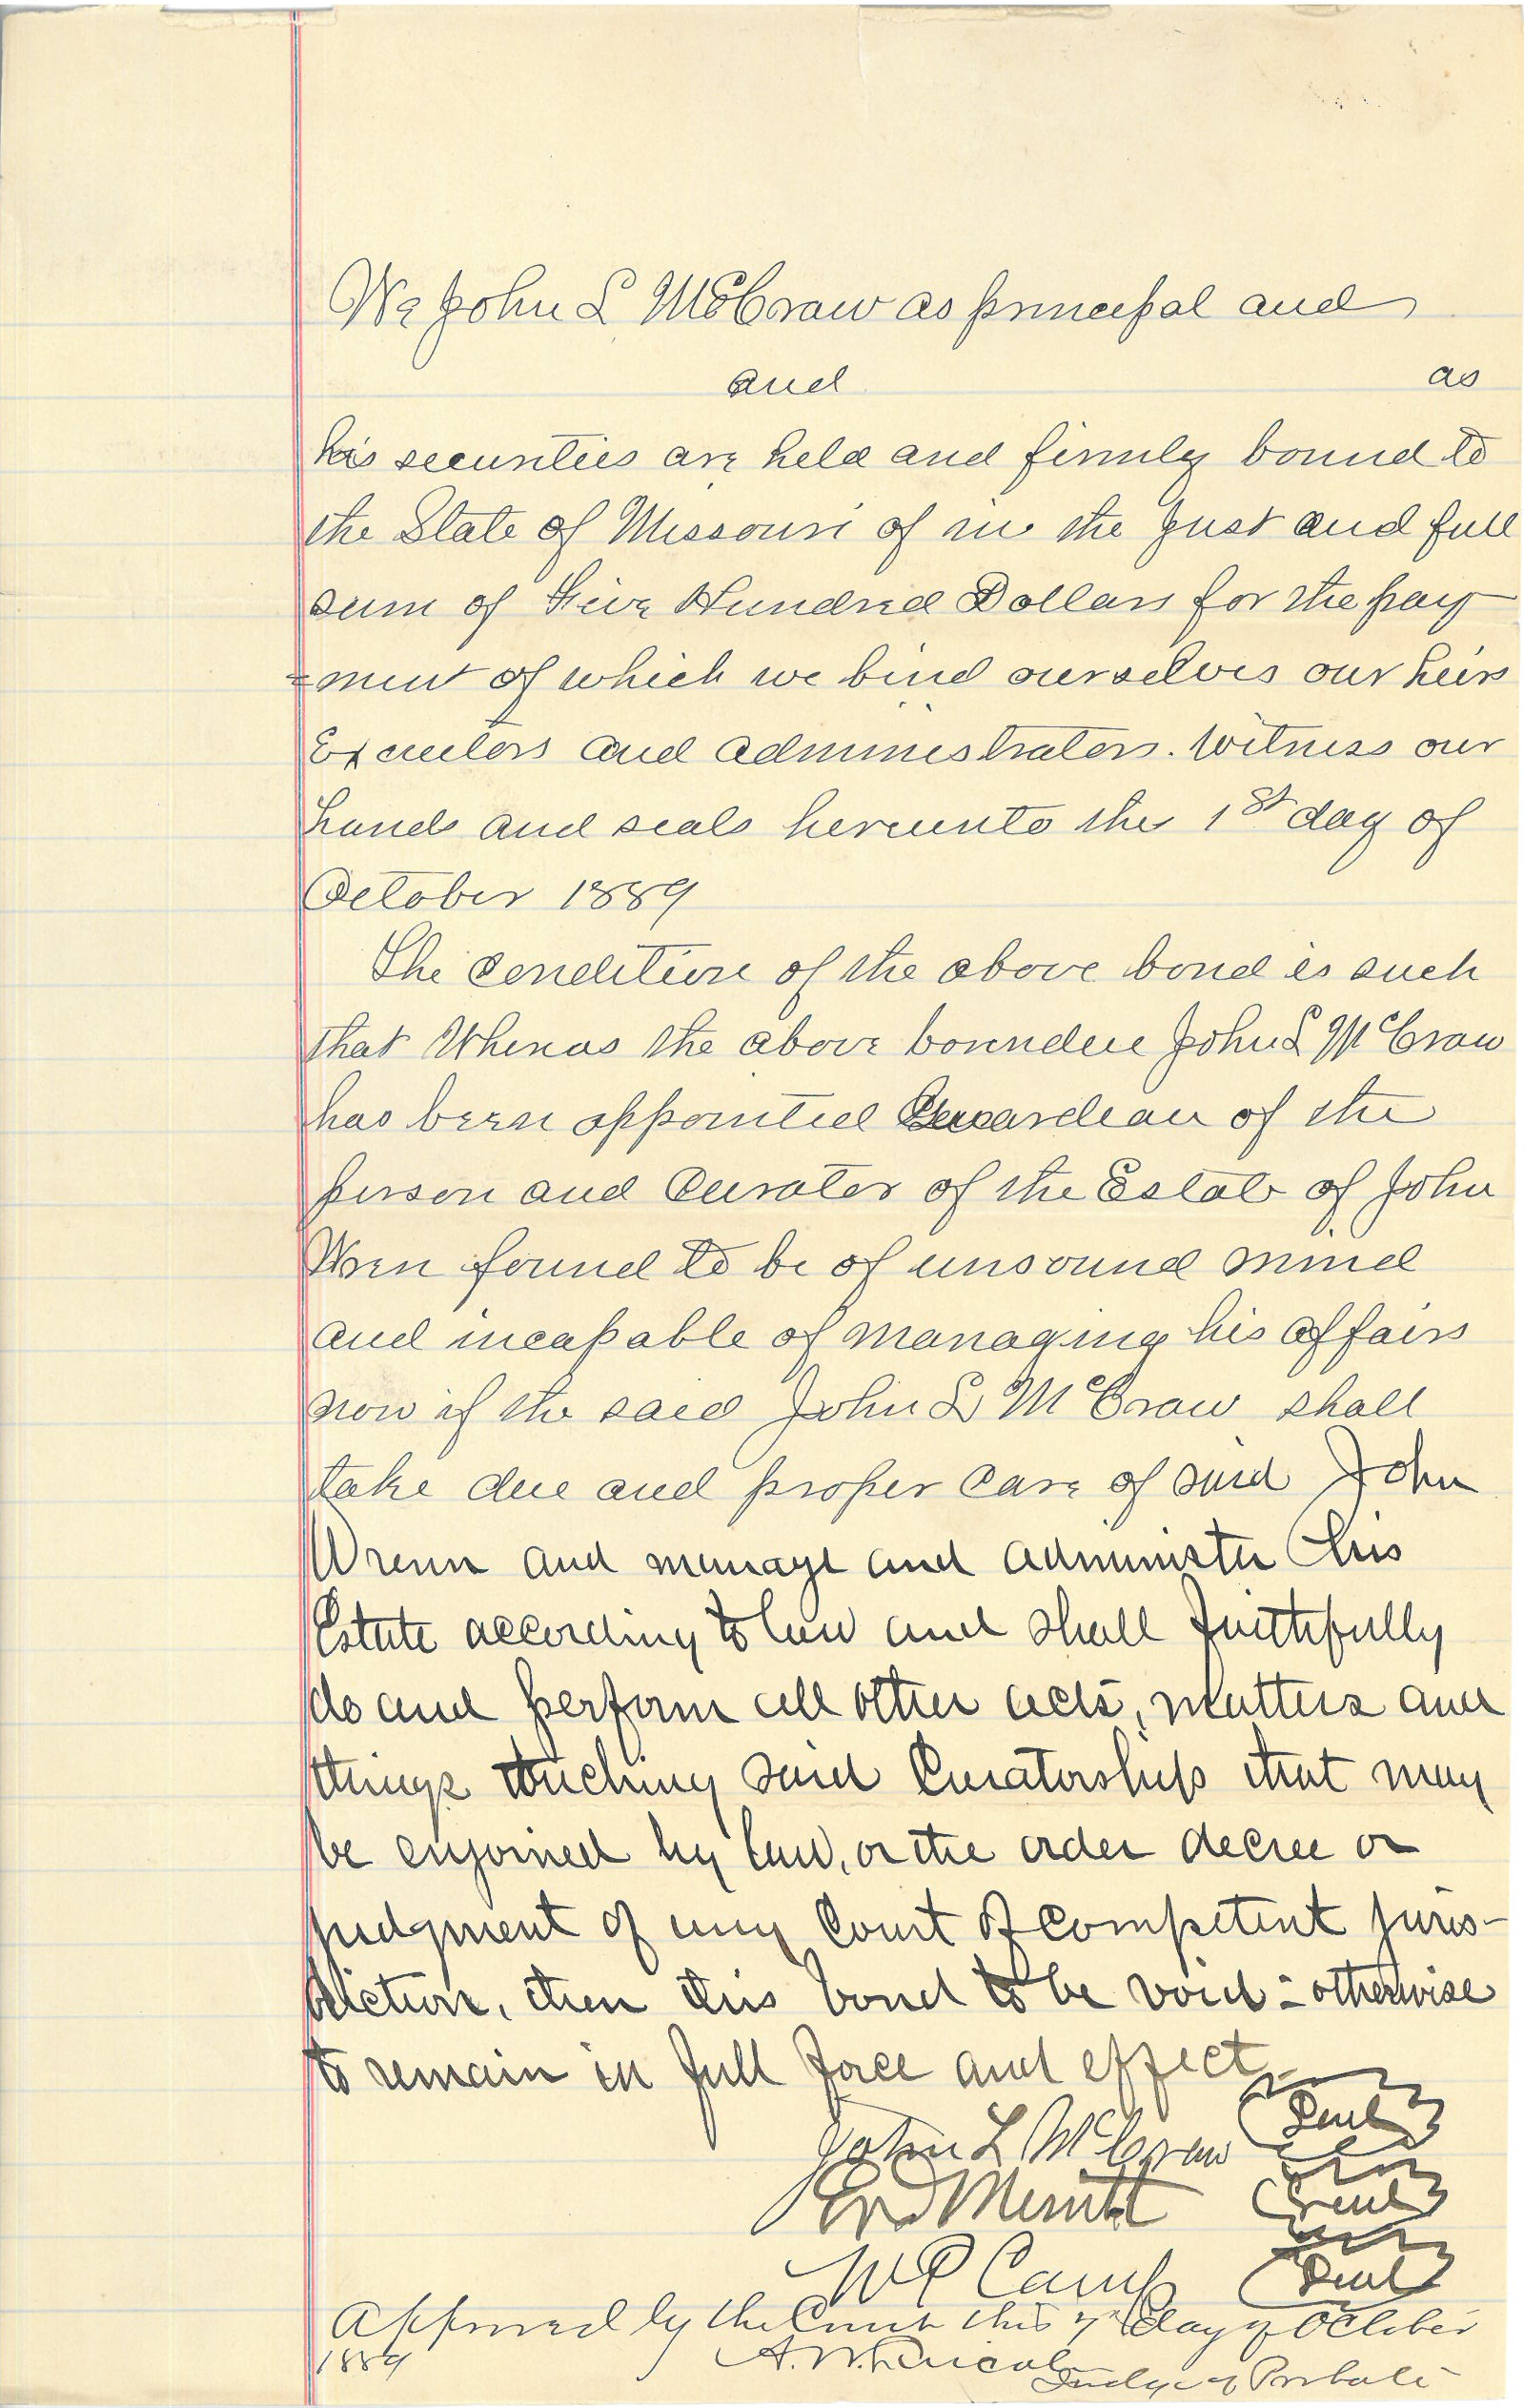 We John L McCraw as principal and
and as
his securities are held and firmly bound to
the State of Missouri of in the just and full
sum of Five Hundred Dollars for the pay
=ment of which we bind ourselves our heirs
Executors and administrators. Witness our
hands and seals hereunto the 1st day of
October 1889
The condition of the above bond is such
that Whereas the above bounden John L McCraw
has been appointed Guardian of the
person and Curator of the Estate of John
Wren found to be of unsound mind
and incapable of managing his affairs
now if the said John L McCraw shall
take due and proper care of said John
Wrenn and manage and administer his
Estate according to law and shall faithfully
do and perform all other acts, matters and
things touching said Curatorship that may
be enjoined by law, or the order decree or
judgment of any Court of competent juris-
diction, then this bond to be void - otherwise
to remain in full force and effect
John L McCraw Seal
Merritt Seal
W P Camp Seal
Approved by the Court this 7th day of October
1889 A. W. Lincoln
Judge of Probate